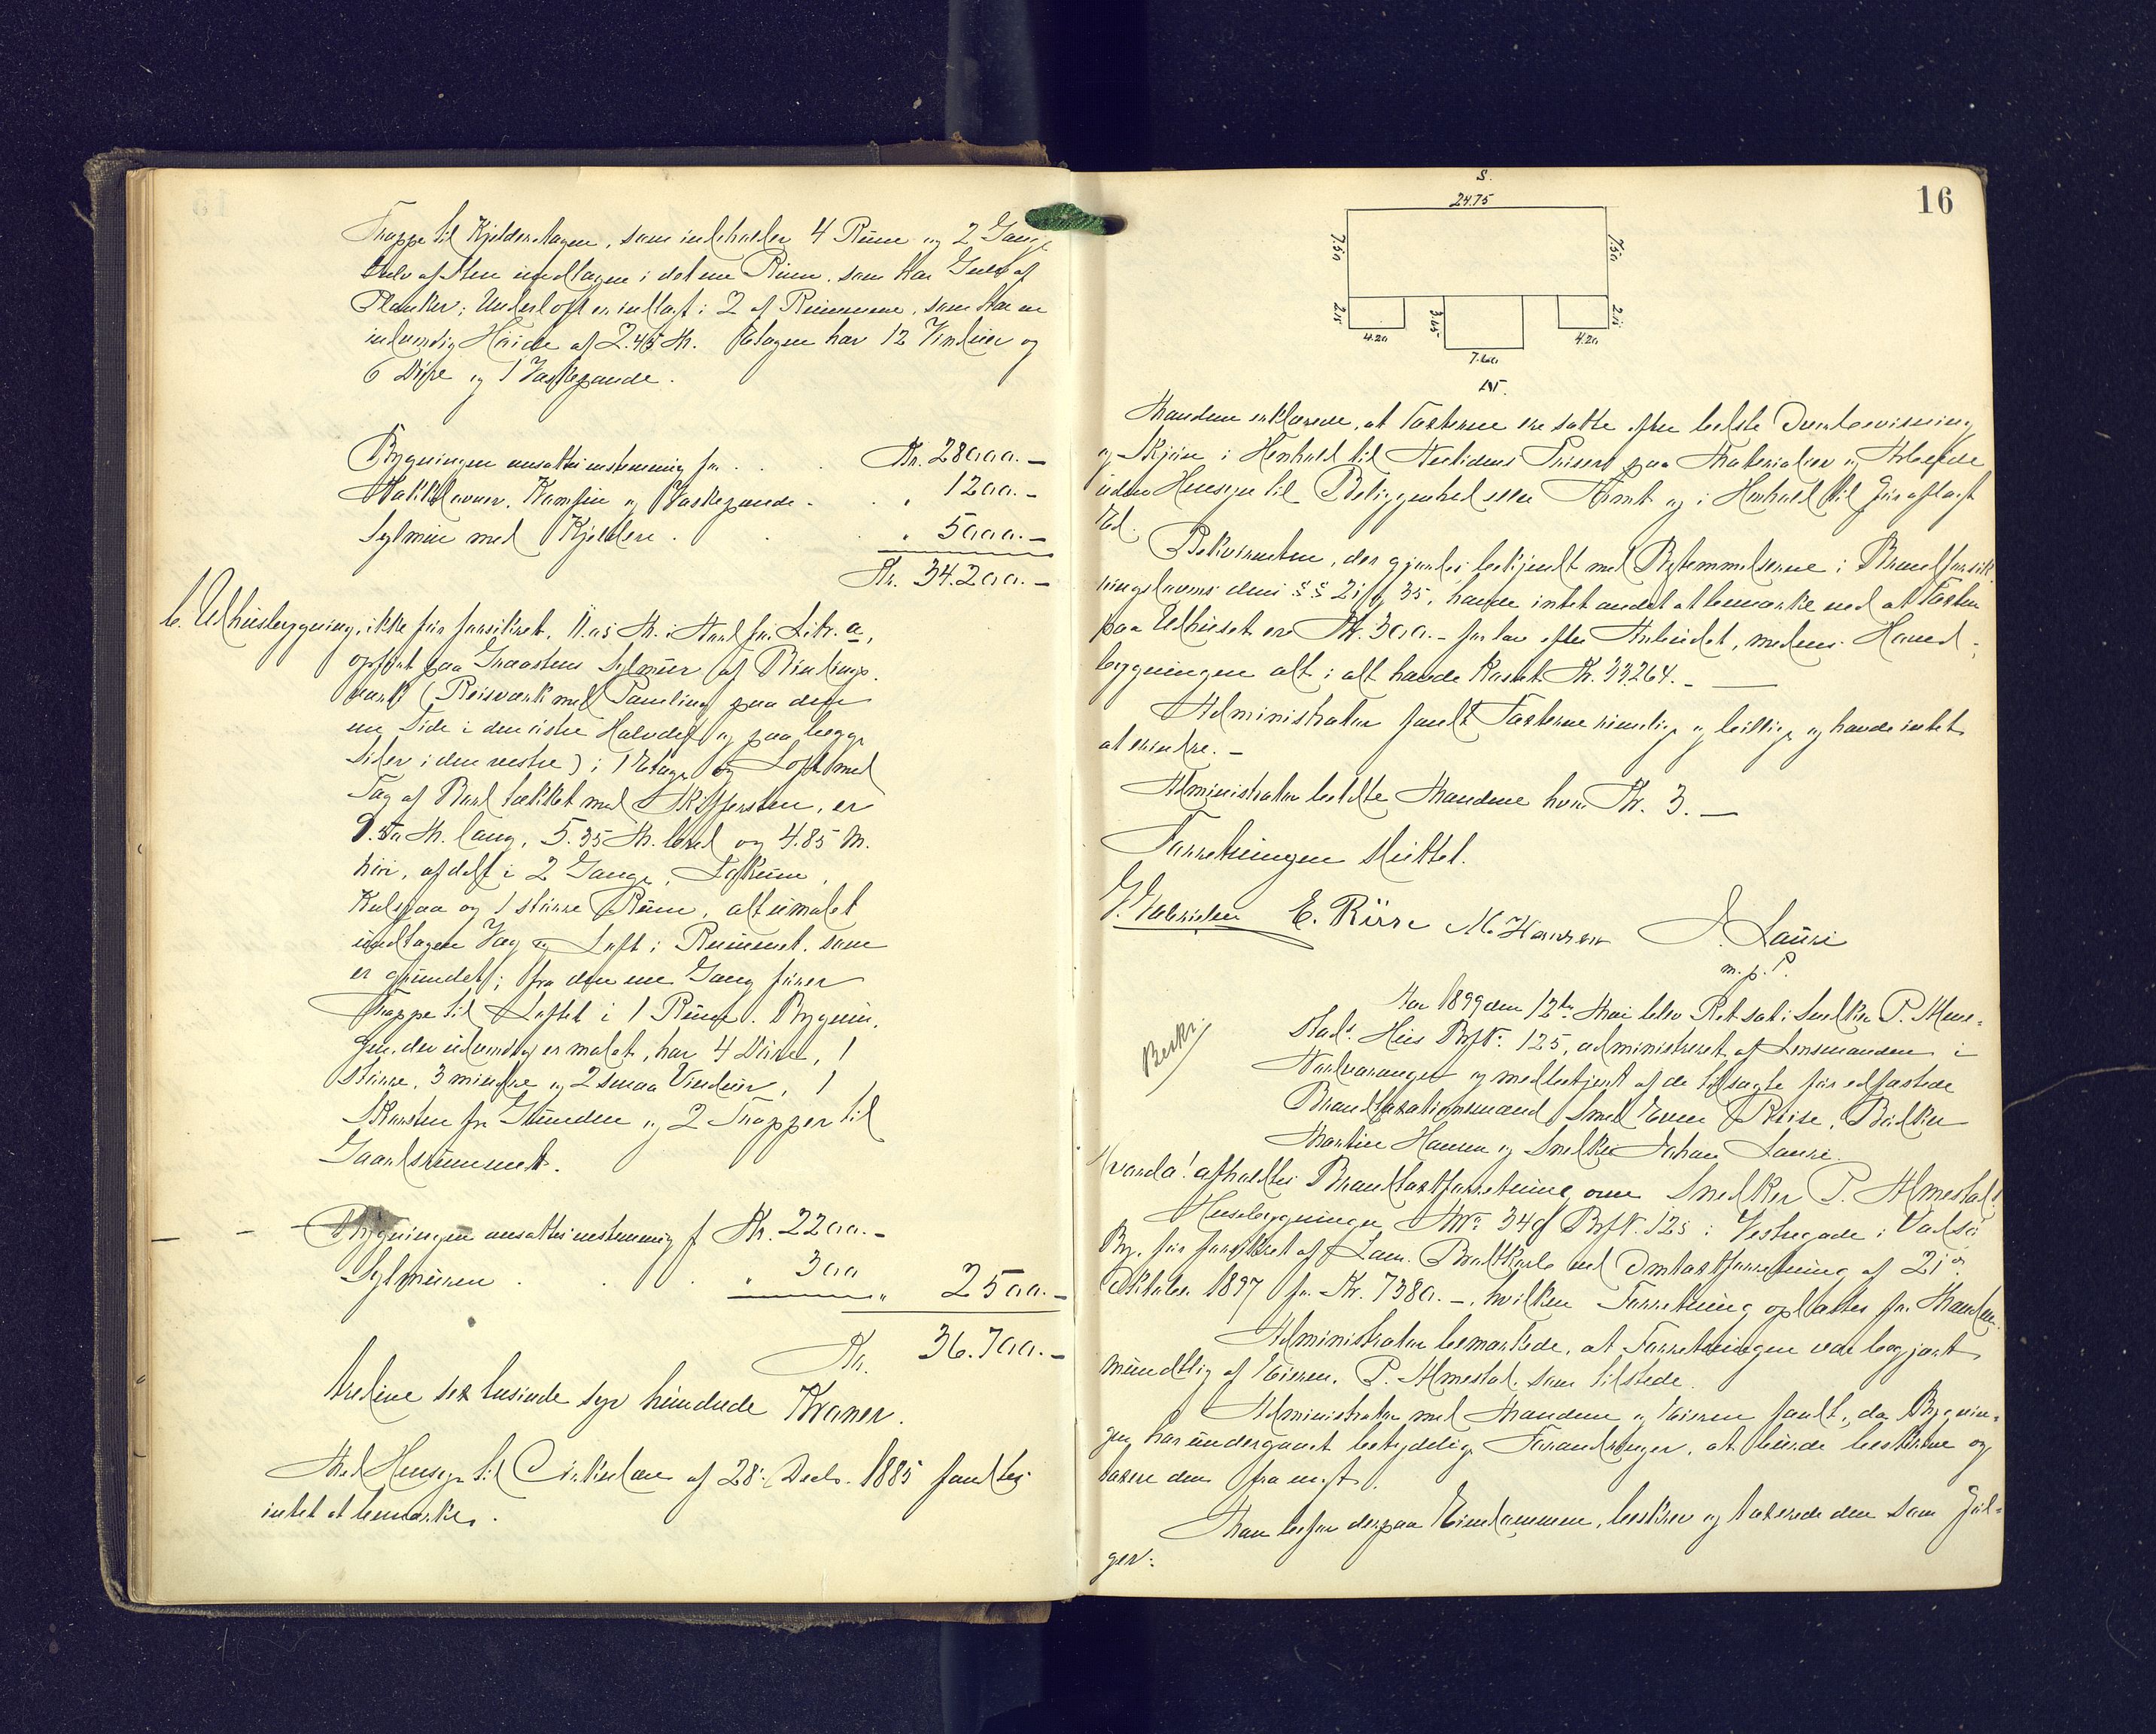 Trappe til Kjelderetagen, som indeholder 4 Rum og 2 Gange
Gulv af Sten undtagen i det ene Rum, som har Gulv af
Planker; Underloft er indlagt i 2 af Rummene, som har en
indvendig Høide af 2.45 M. Etagen har 12 Vinduer og
6 Døre og 1 Vaskepande.
Bygningen ansattes enstemmig for . . . Kr. 28000.—
Kakkelovner, Komfur og Vaskepande . . " 1200.—
Sylmur med Kjelder . . . " 5000.—
Kr. 34.200.—
b. Udhusbygning, ikke før forsikret, 11.05 M. i Nord for Litr. a,
opført paa Graastens Sylmur af Bindings-
værk (Reisværk med Paneling paa den
ene Side i den østre Halvdel og paa begge
Sider i den vestre) i 1 Etage og Loft med
Tag af Bord tækket med Skifersten, er
9.50 M. lang, 5.35 M. bred og 4.85 M.
høi, afdelt i 2 Gange,
og 1 større Rum, alt umalet
undtagen Væg og Loft i Rummet, som
er grundet; fra den ene Gang fører
Trappe til Loftet i 1 Rum. Bygnin-
gen, der udvendig er malet, har 4 Døre, 1
større, 3 mindre og 2 smaa Vinduer, 1
Skorsten fra Grunden og 2 Trapper til
Gaardsrummet.
Bygningen ansattes enstemmig f Kr. 2200.—
Sylmuren . . . " 300 " 2500.—
Kr. 36.700.—
tredive sex tusinde syv hundrede Kroner.
Med Hensyn til Cirkulære af 28. Decb. 1885 fandtes
intet at bemærke.
16
S.
24.75
7.50
7.50
2.15
2.15
4.20
3.65
4.20
7.60
N.
Mændene erklærede, at Taxterne ere satte efter bedste Overbevisning
og Skjøn i Henhold til Nutidens Priser paa Materialier og Arbeide
uden Hensyn til Beliggenhed eller Tomt og i Henhold til før aflagt
Ed.
Rekvirenten, der gjordes bekjendt med Bestemmelserne i Brandforsik-
ringslovens §§ 21 og 35, havde intet andet at bemærke end at Taxten
paa Udhuset er Kr. 300.— for lav efter Anbudet, medens Hoved-
bygningen alt i alt havde kostet Kr. 33264.—
Administrator fandt Taxterne rimelige og billige og havde intet
at erindre.—
Administrator betalte Mændene hver Kr. 3.—
Forretningen sluttet.
G. Gabrielsen E. Riise M. Hansen J. Lauri
m. p. P.
Beskr.
Aar 1899 den 12te Mai blev Ret sat i Snedker P. Alme-
stads Hus Brf.No. 125, administreret af Lensmanden i
Nordvaranger og medbetjent af de tilsagte før edfæstede
Brandtaxationsmænd Smed Even Riise, Bødker
Martin Hansen og Snedker Johan Lauri.
Hvorda! afholdtes Brandtaxtforretning over Snedker P. Almestads
Husebygninger, M.No. 349 Brf.No. 125 i Vestregade i Vadsø
By, før forsikret af Lars Bratkarle ved Omtaxtforretning af 21de
Oktober 1897 for Kr. 7380.—, hvilken Forretning oplæstes for Mændene.
Administrator bemærkede, at Forretningen var begjært
mundtlig af Eieren, P. Almestad, som tilstede.
Administrator med Mændene og Eieren fandt, da Bygnin-
gen har undergaaet betydelige Forandringer, at burde beskrive og
taxere dem fra nyt.
Man befor derpaa Eiendommen, beskrev og taxerede den som føl-
ger: